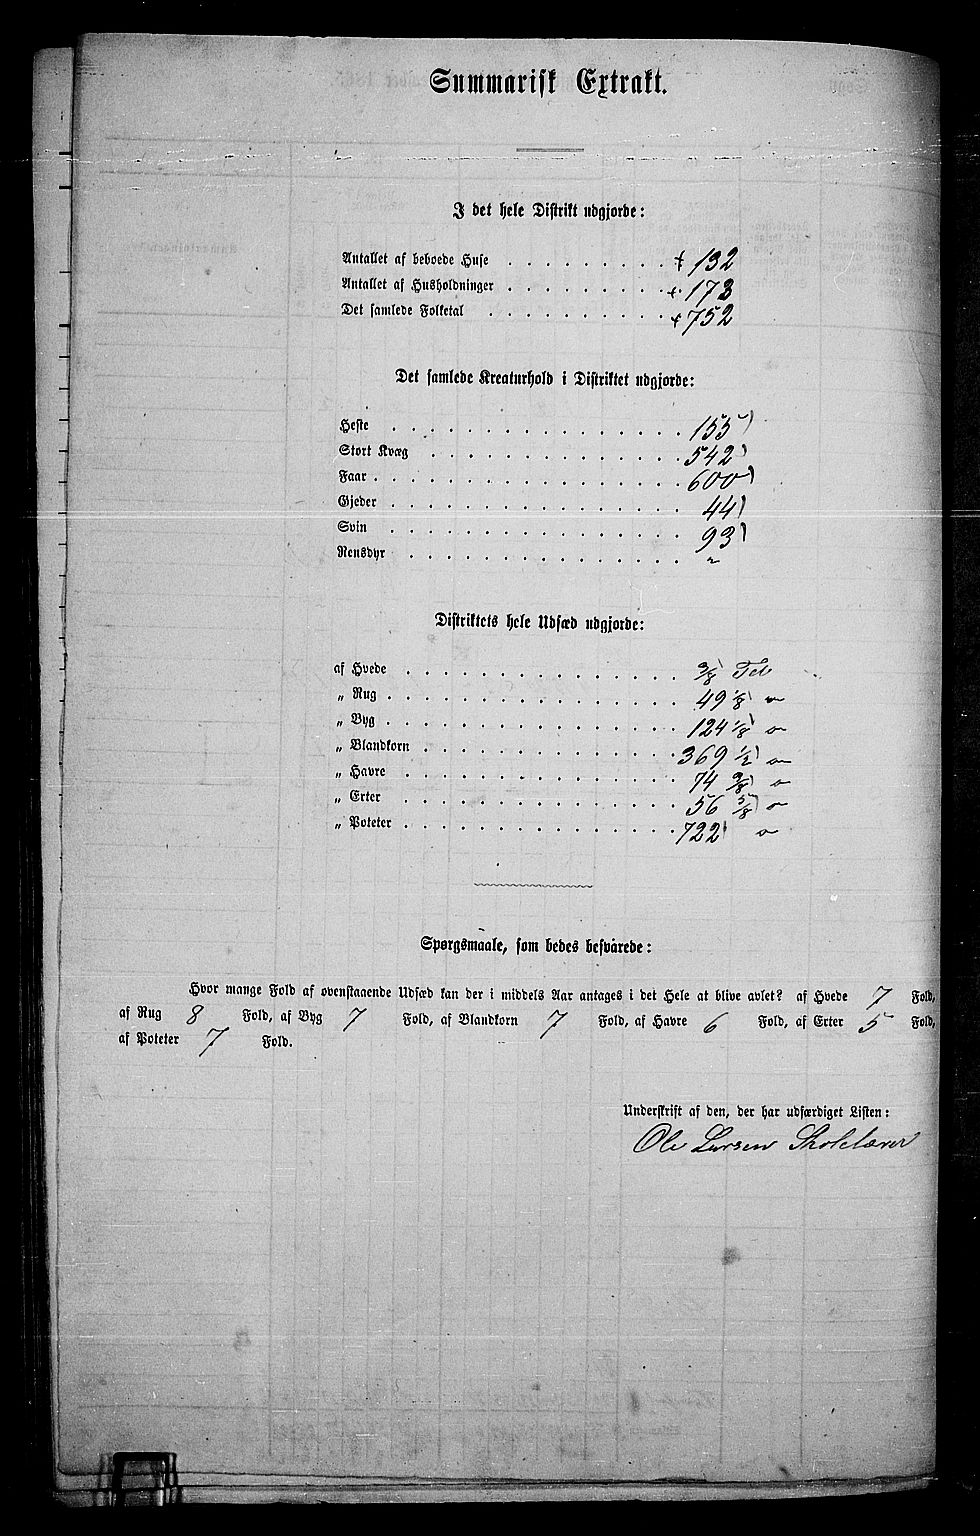 Summarisk Extrakt.
I det hele Distrikt udgjorde:
Antallet af beboede Huse . . . . . . . . 132
Antallet af Husholdninger . . . . . . . . 173
Det samlede Folketal . . . . . . . . 752
Det samlede Kreaturhold i Distriktet udgjorde:
Heste . . . . . . . . 155
Stort Kvæg . . . . . . . . 542
Faar . . . . . . . . 600
Gjeder . . . . . . . . 44
Svin . . . . . . . . 93
Rensdyr . . . . . . . . "
Distriktets hele Udsæd udgjorde:
af Hvede . . . . . . . . 3/8 Td
„ Rug . . . . . . . . 49 1/8 "
„ Byg . . . . . . . . 124 1/8 "
„ Blandkorn . . . . . . . . 369 1/2 "
„ Havre . . . . . . . . 74 3/8 "
„ Erter . . . . . . . . 56 5/8 "
„ Poteter . . . . . . . . 722 "
Spørgsmaale, som bedes besvarede:
Hvor mange Fold af ovenstaaende Udsæd kan der i middels Aar antages i det Hele at blive avlet? af Hvede 7 Fold,
af Rug 8 Fold, af Byg 7 Fold, af Blandkorn 7 Fold, af Havre 6 Fold, af Erter 5 Fold,
af Poteter 7 Fold.
Underskrift af den, der har udfærdiget Listen:
Ole Larsen Skolelærer